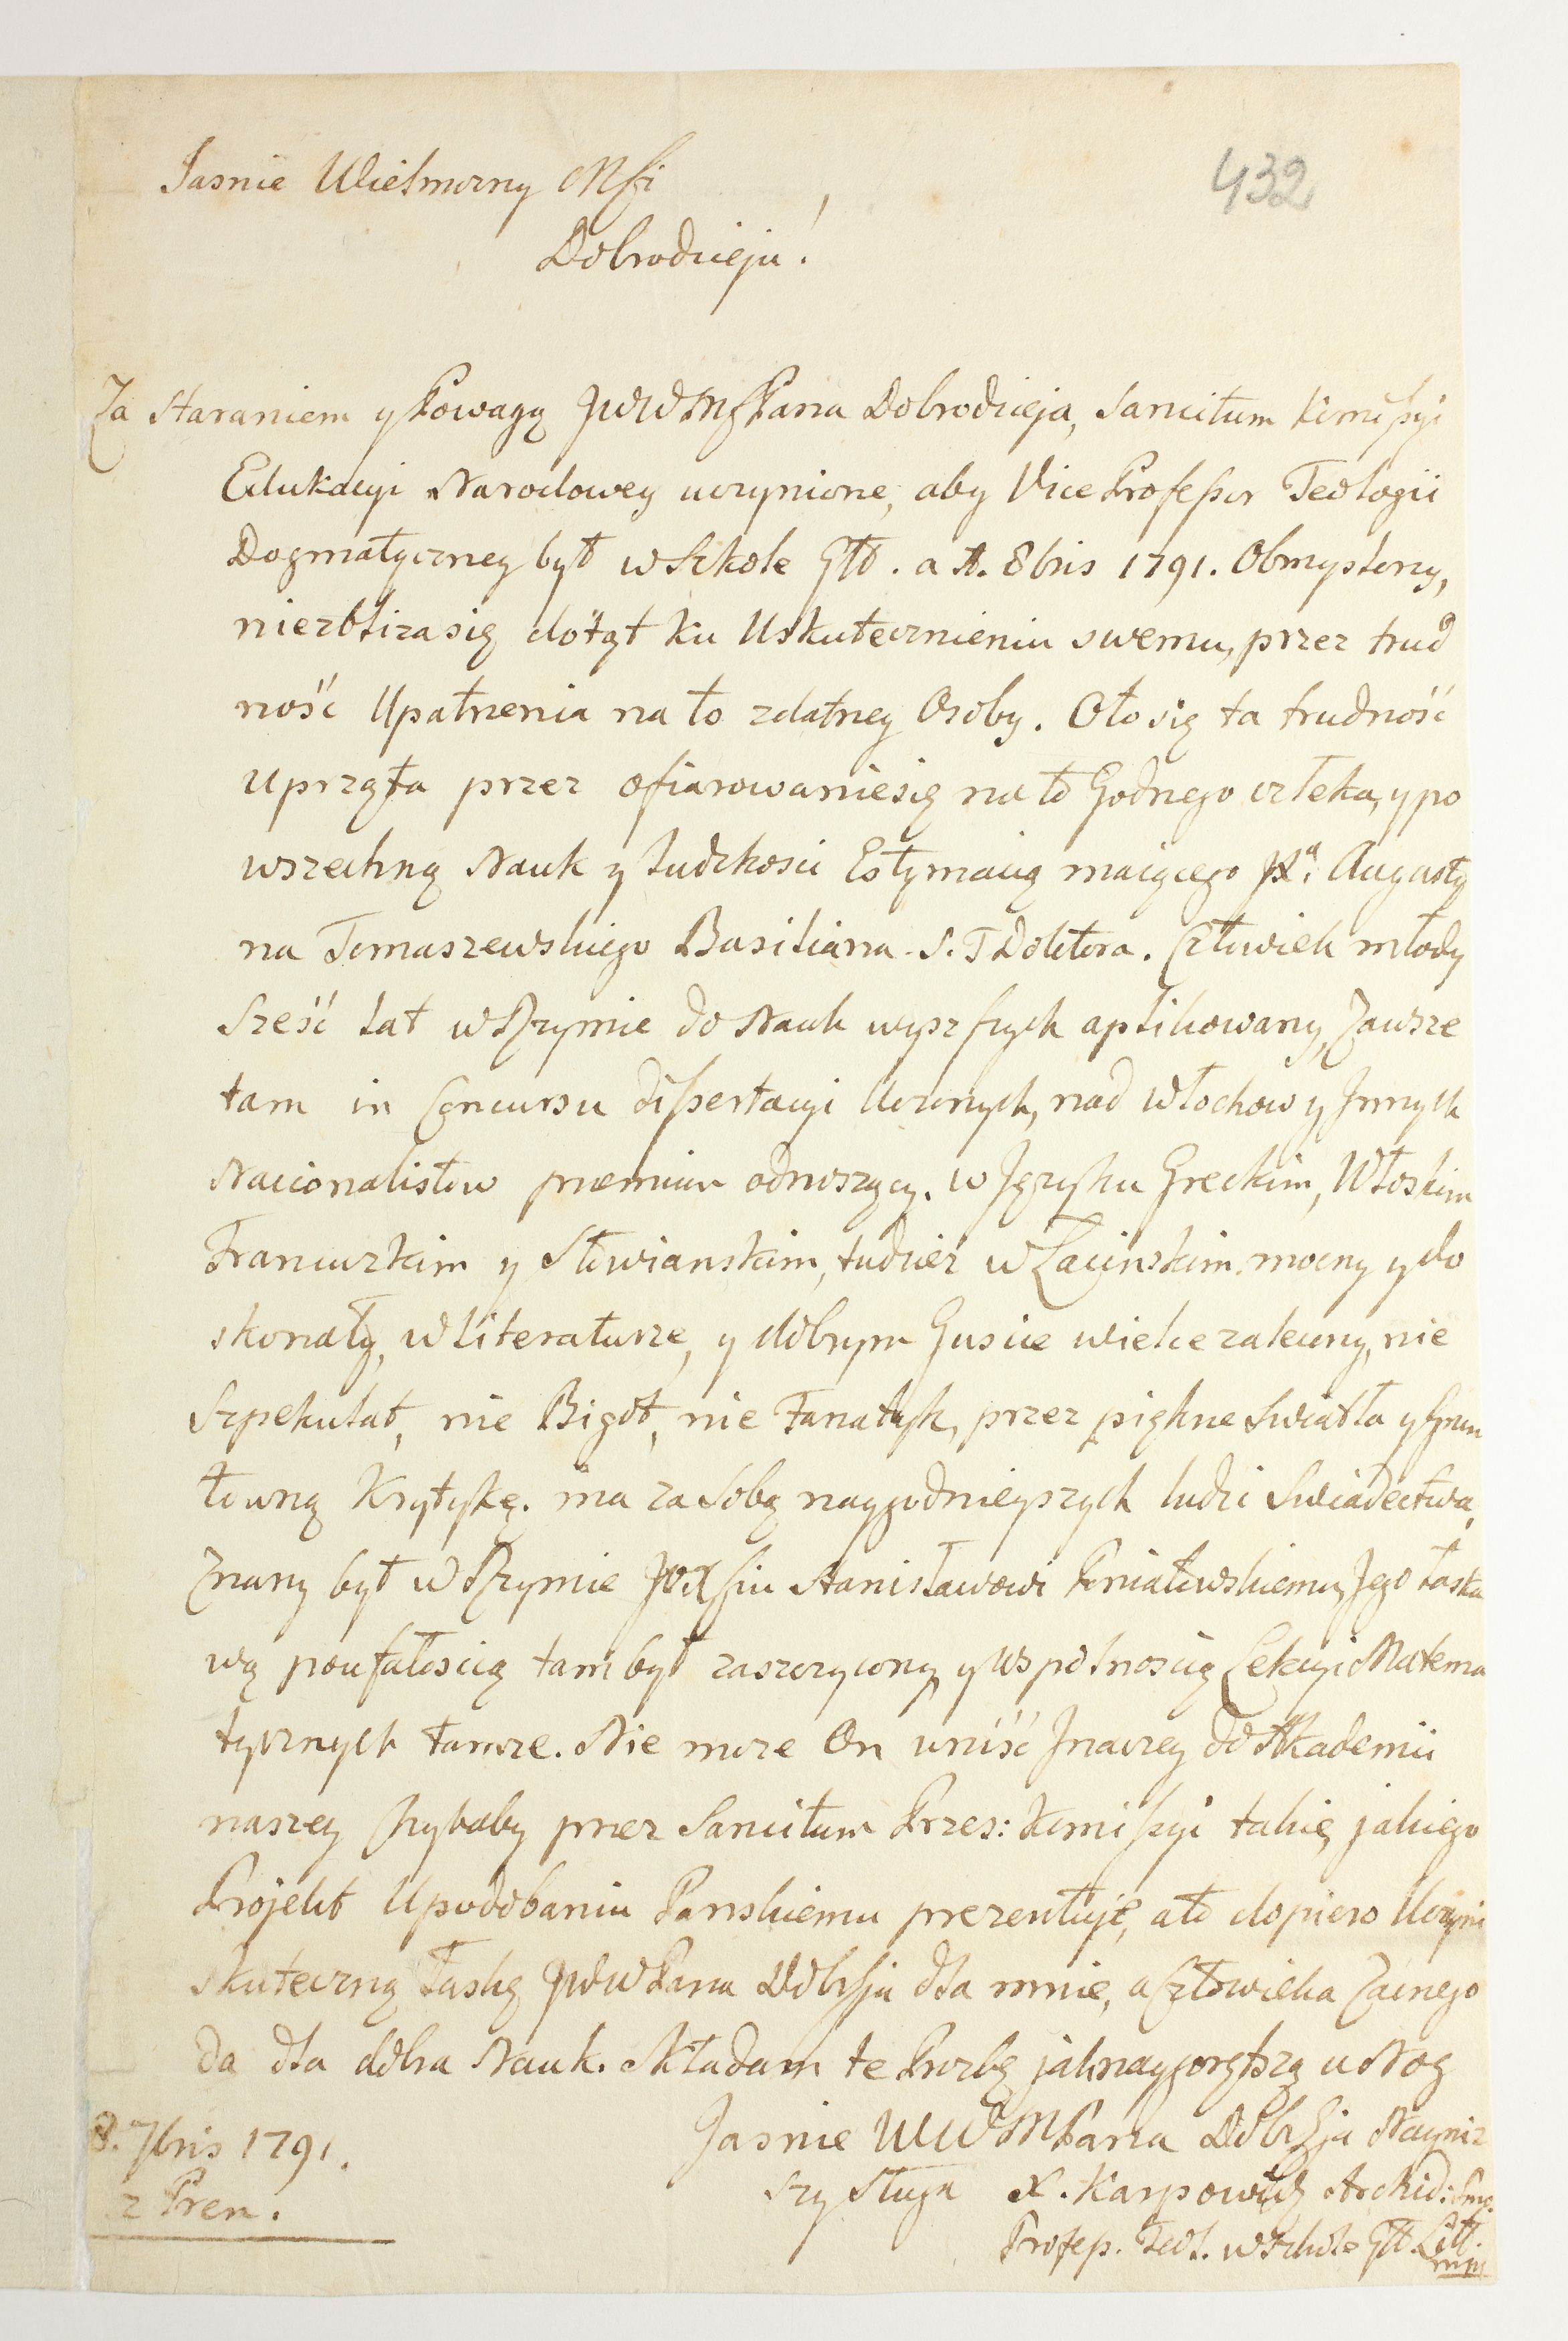 432
Jasnie Wielmozny Msci
Dobrodzieju!
Za staraniem y Powagą JWWMsPana Dobrodzieja, Sancitum Komissyi
Edukacyi Narodowey uczynione, aby Vice Professor Teologii
Dogmatyczney był w Szkole Głó. a 1. 8bris 1791. Obmyslony,
niezbliza się dotąt ku Uskutecznieniu swemu, przez trud
ność Upatrzenia na to zdatney Osoby. Oto się ta trudność
uprząta przez ofiarowanie się na to Godnego człeka, y po
wszechną Nauk y Ludzkosci Estymacią maiącego Augusty
na Tomaszewskiego Basiliana S. T Doktora. Człowiek młody
Sześć lat w Rzymie do Nauk wyzszych aplikowany, Zawsze
tam in Concursu dissertacyi Uczonych, nad Włochow y Innych
Nacionalistow præmium odnoszący. w Języku Greckim, Włoskim
Francuzkim y Słowianskim, tudziez w Łacinskim mocny y do
skonały, w Literaturze, y dobrym Guscie wielce zalecony, nie
Szpekulat, nie Bigot, nie Fanatyk, przez piękne Swiatła y Grun
towną Krytykę. ma za Sobą naygodnieyszych ludzi Swiadectwa,
Znany był w Rzymie JOXsciu Stanisławowi Poniatowskiemu, Jego łaska
wą poufałoscią tam był zaszczycony, y wspolnoscią Lekcyi Matema
tycznych tamze. Nie moze On wniść Inaczey do Akademii
naszey chybaby przez Sancitum Przes: Komissyi takie, jakiego
Projekt Upodobaniu Panskiemu prezentuję, a to dopiero Uczyni
skuteczną Łaskę JWWPana Dobrja dla mnie, a Człowieka Zacnego
da dla dobra Nauk. Składam te Prozbę jaknaygorętszą u Nog
Jasnie WWMPana Dobrja Nayniz
szy Sługa X. Karpowicz Archid: Smo.
Profess. Teol. w Szkole Głł Litt.
mp
8. 7bris 1791.
z Pren.